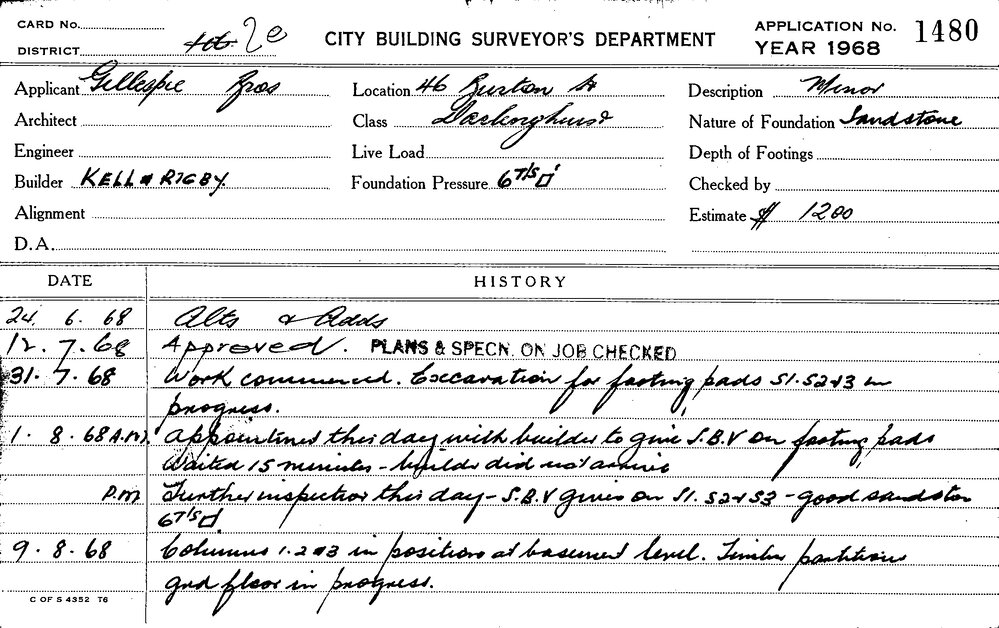 CARD No.
DISTRICT 2e
CITY BUILDING SURVEYOR'S DEPARTMENT
APPLICATION No. 1480
YEAR 1968
Applicant Gillespie Bros
Location 46 Burton St
Description Minor
Architect
Class Darlinghurst
Nature of Foundation Sandstone
Engineer
Live Load
Depth of Footings
Builder KELL & RIGBY.
Foundation Pressure 6 T/S □'
Checked by
Alignment
Estimate $ 1200
D.A.
DATE HISTORY
24. 6. 68 Alts & Adds
12. 7. 68 Approved. PLANS & SPECN. ON JOB CHECKED
31. 7. 68 Work commenced. Excavation for footing pads S1. S2 & 3 in
progress.
1. 8. 68 A.M. Appointment this day with builder to give S.B.V on footing pads
Waited 15 minutes - builder did not arrive
P.M. Further inspection this day - S.B.V given on S1. S2 & S3 - good sandston
6T/S □'
9. 8. 68 Columns 1. 2 & 3 in position at basement level. Timber partition
grd floor in progress.
C OF S 4352 T6